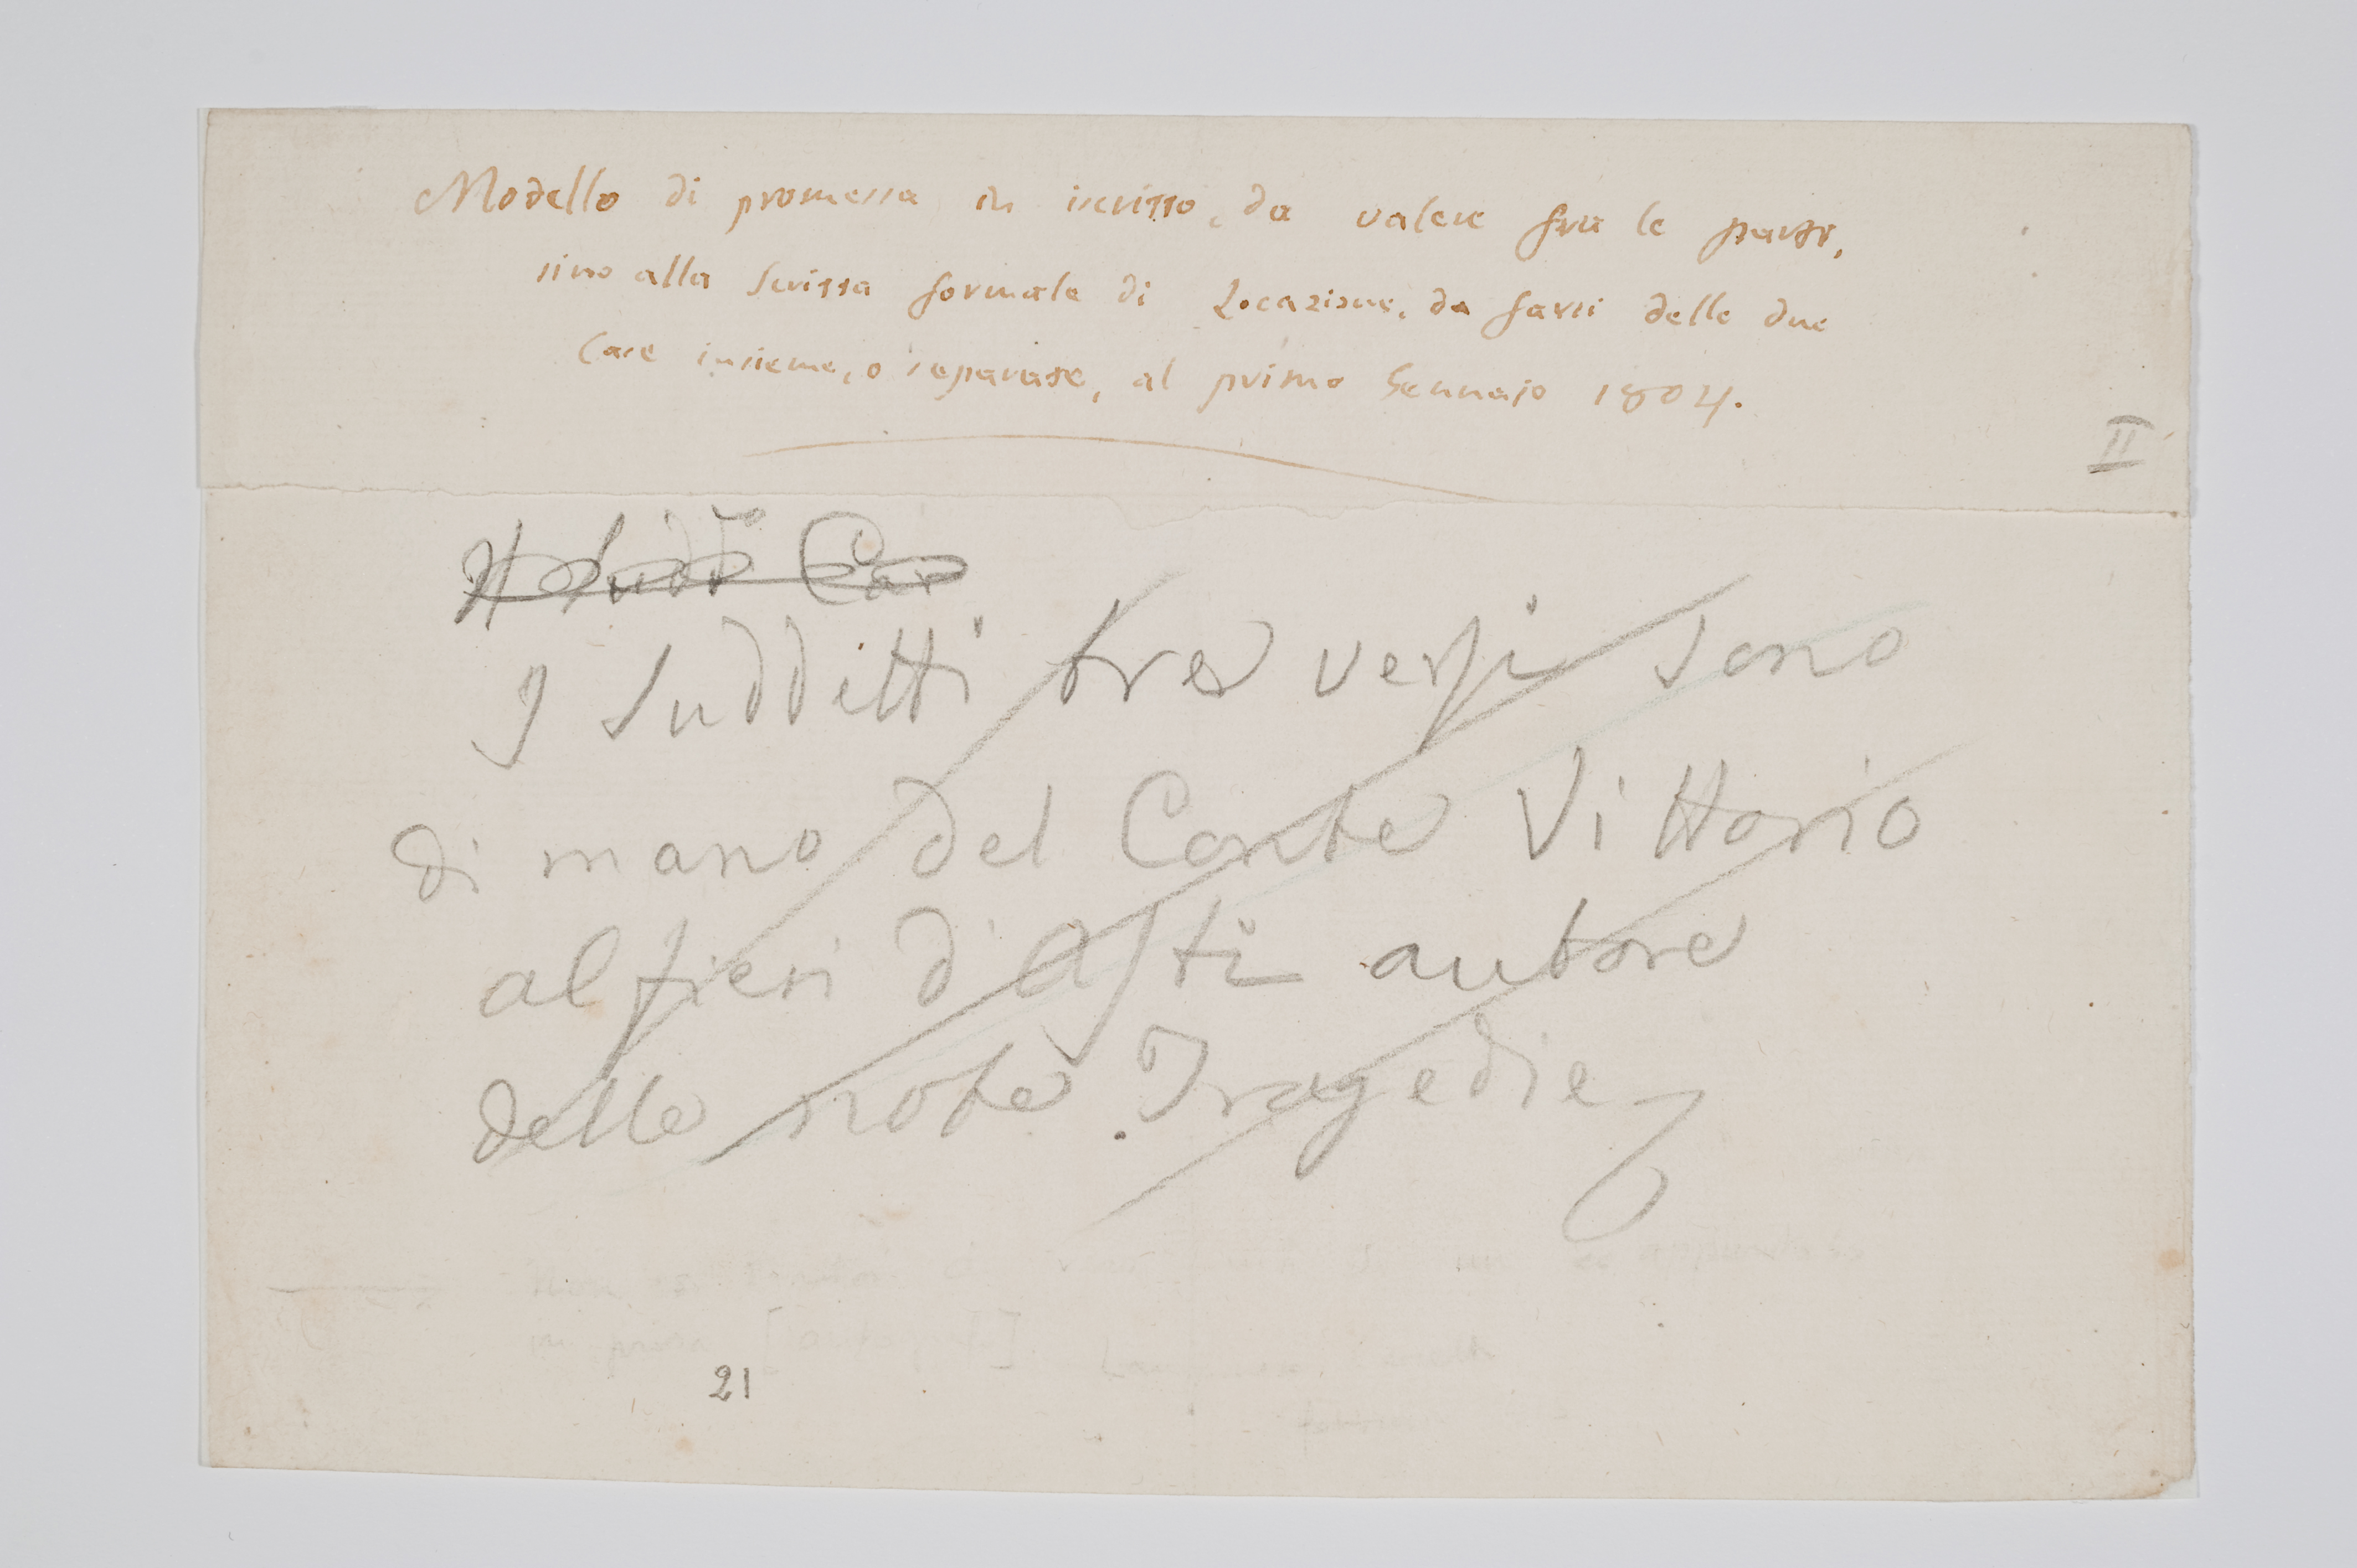 Modello di promessa in iscritto, da valere fra le parti,
sino alla Scritta formale di Locazione, da farsi delle due
Case insieme, o separate, al primo Gennaio 1804.
II
I Sudditti tre versi sono
di mano del Conte Vittorio
alfieri d'Asti autore
delle note Tragedie
in prosa
21